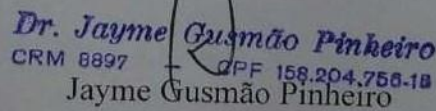 Dr. Jayme Gusmão Pinheiro
CRM 8897 CPF 158.204.756-18
Jayme Gusmão Pinheiro